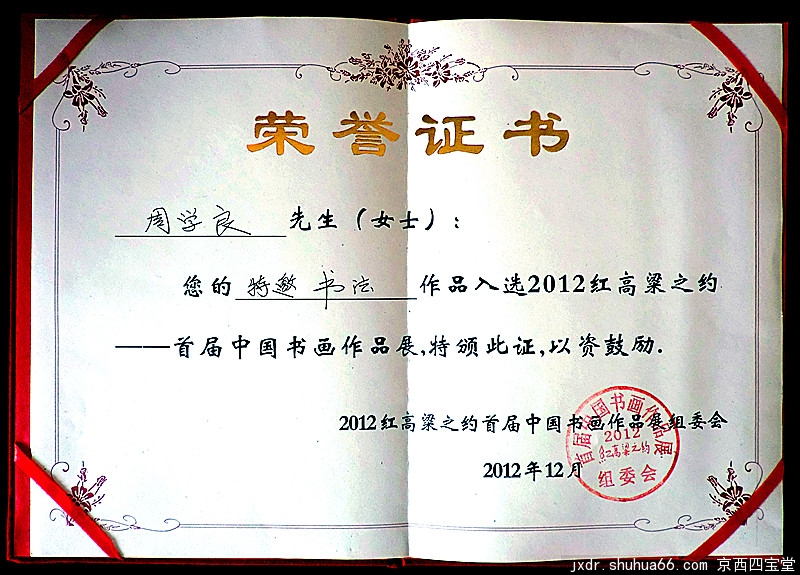 荣誉证书
周学良 先生（女士）：
您的 特邀 书法 作品入选2012红高粱之约
——首届中国书画作品展,特颁此证,以资鼓励.
2012红高粱之约首届中国书画作品展组委会
2012年12月
首届中国书画作品展
2012
红高粱之约
组委会
jxdr.shuhua66.com 京西四宝堂